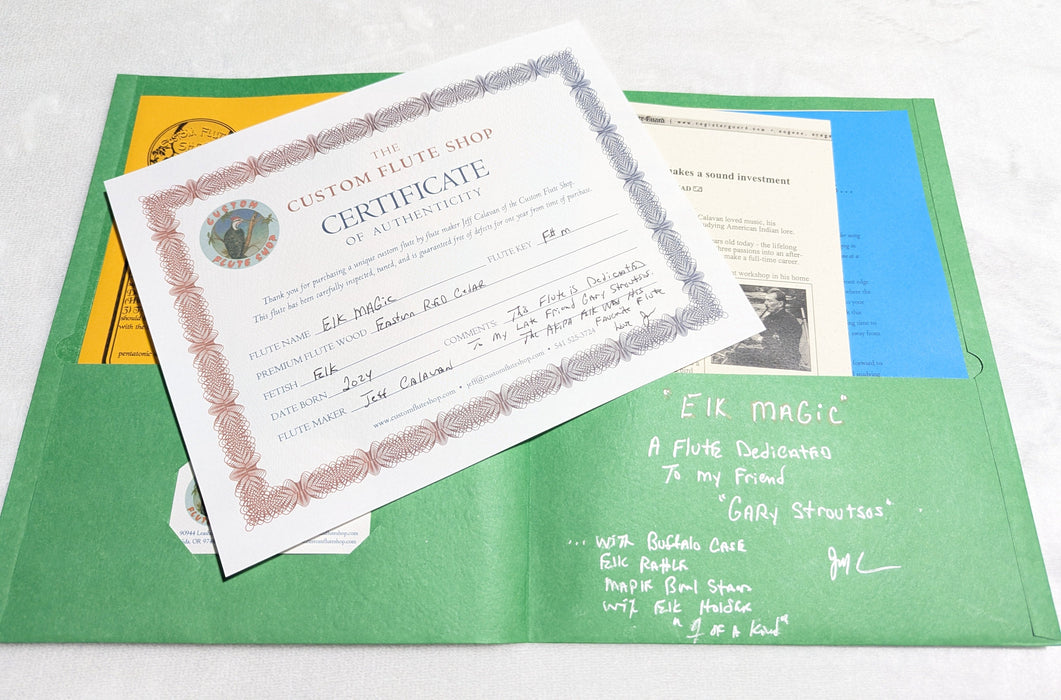 THE
CUSTOM FLUTE SHOP
CERTIFICATE
OF AUTHENTICITY
CUSTOM
FLUTE SHOP
Thank you for purchasing a unique custom flute by flute maker Jeff Calavan of the Custom Flute Shop.
This flute has been carefully inspected, tuned, and is guaranteed free of defects for one year from time of purchase.
FLUTE NAME Elk MAGic FLUTE KEY F# m
PREMIUM FLUTE WOOD Eastern Red Cedar
FETISH Elk COMMENTS: This Flute is Dedicated
To My Late Friend Gary Stroutsos.
DATE BORN 2024
The Elk Was His
Favorite Flute
FLUTE MAKER Jeff CALAVAN
www.customfluteshop.com • jeff@customfluteshop.com • 541 525-3724
pentatonic
90944
OR
akes a sound investment
Calavan loved music, his
udying American Indian lore.
ars old today - the lifelong
three passions into an after-
make a full-time career.
nt workshop in his home
"Elk MAGic"
A Flute Dedicated
To my Friend
"GARy Stroutsos"
... With Buffalo Case
Elk Rattle
Maple Burl Stand
with Elk Holder
"1 of A Kind"